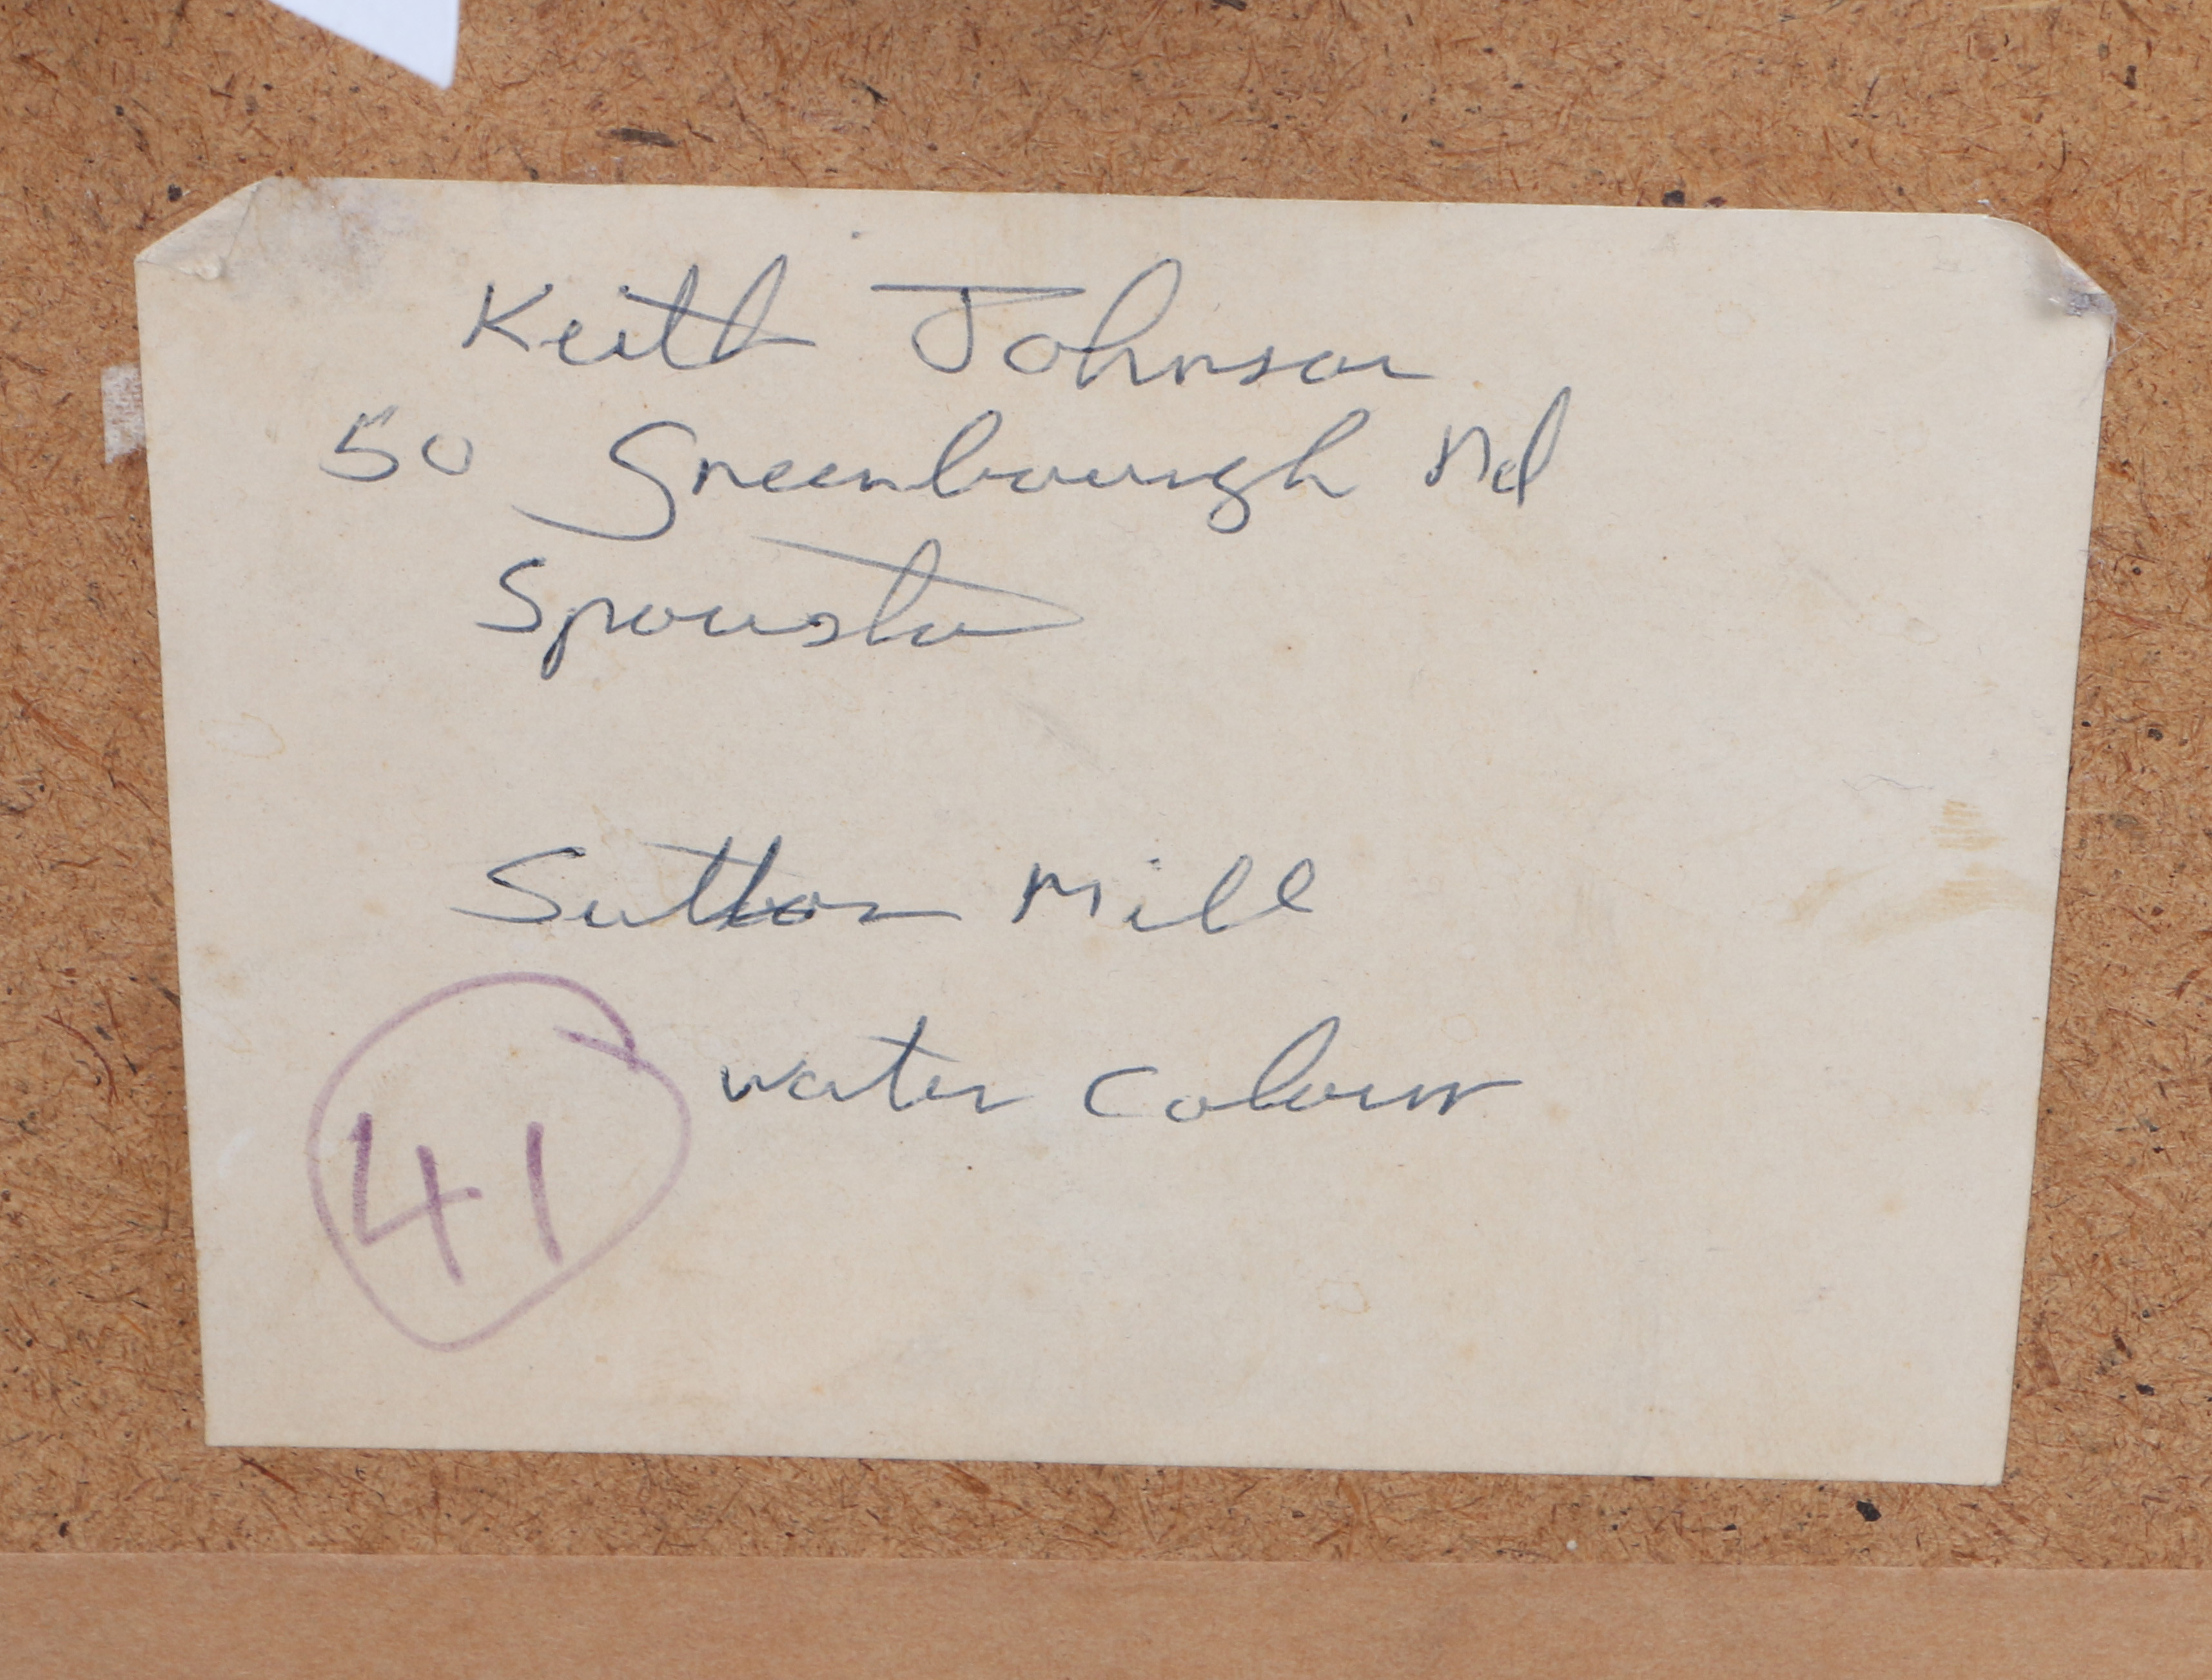 Keith Johnson
50 Greenborough Rd
Sprowston
Sutton Mill
water colour
41